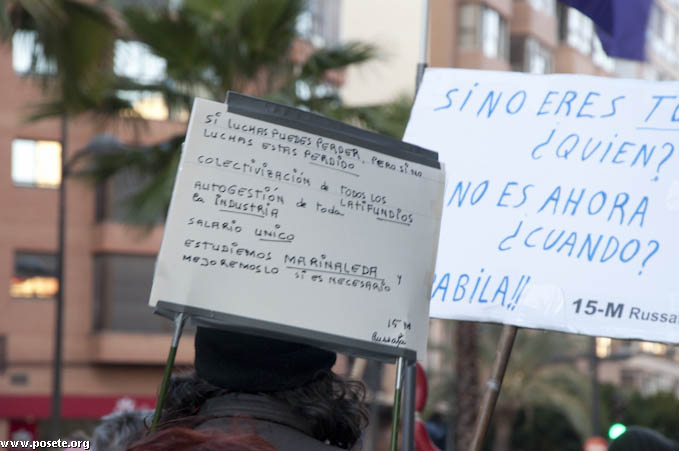 SI LUCHAS PUEDES PERDER, PERO SI NO
LUCHAS ESTAS PERDIDO
COLECTIVIZACIÓN de TODOS LOS
LATIFUNDIOS
AUTOGESTIÓN de toda
la INDUSTRIA
SALARIO UNICO
ESTUDIEMOS MARINALEDA y
MEJOREMOSLO SI ES NECESARIO
15 M
Russafa
SI NO ERES TÚ
¿QUIEN?
NO ES AHORA
¿CUANDO?
ABILA!!
15-M Russaf
www.posete.org